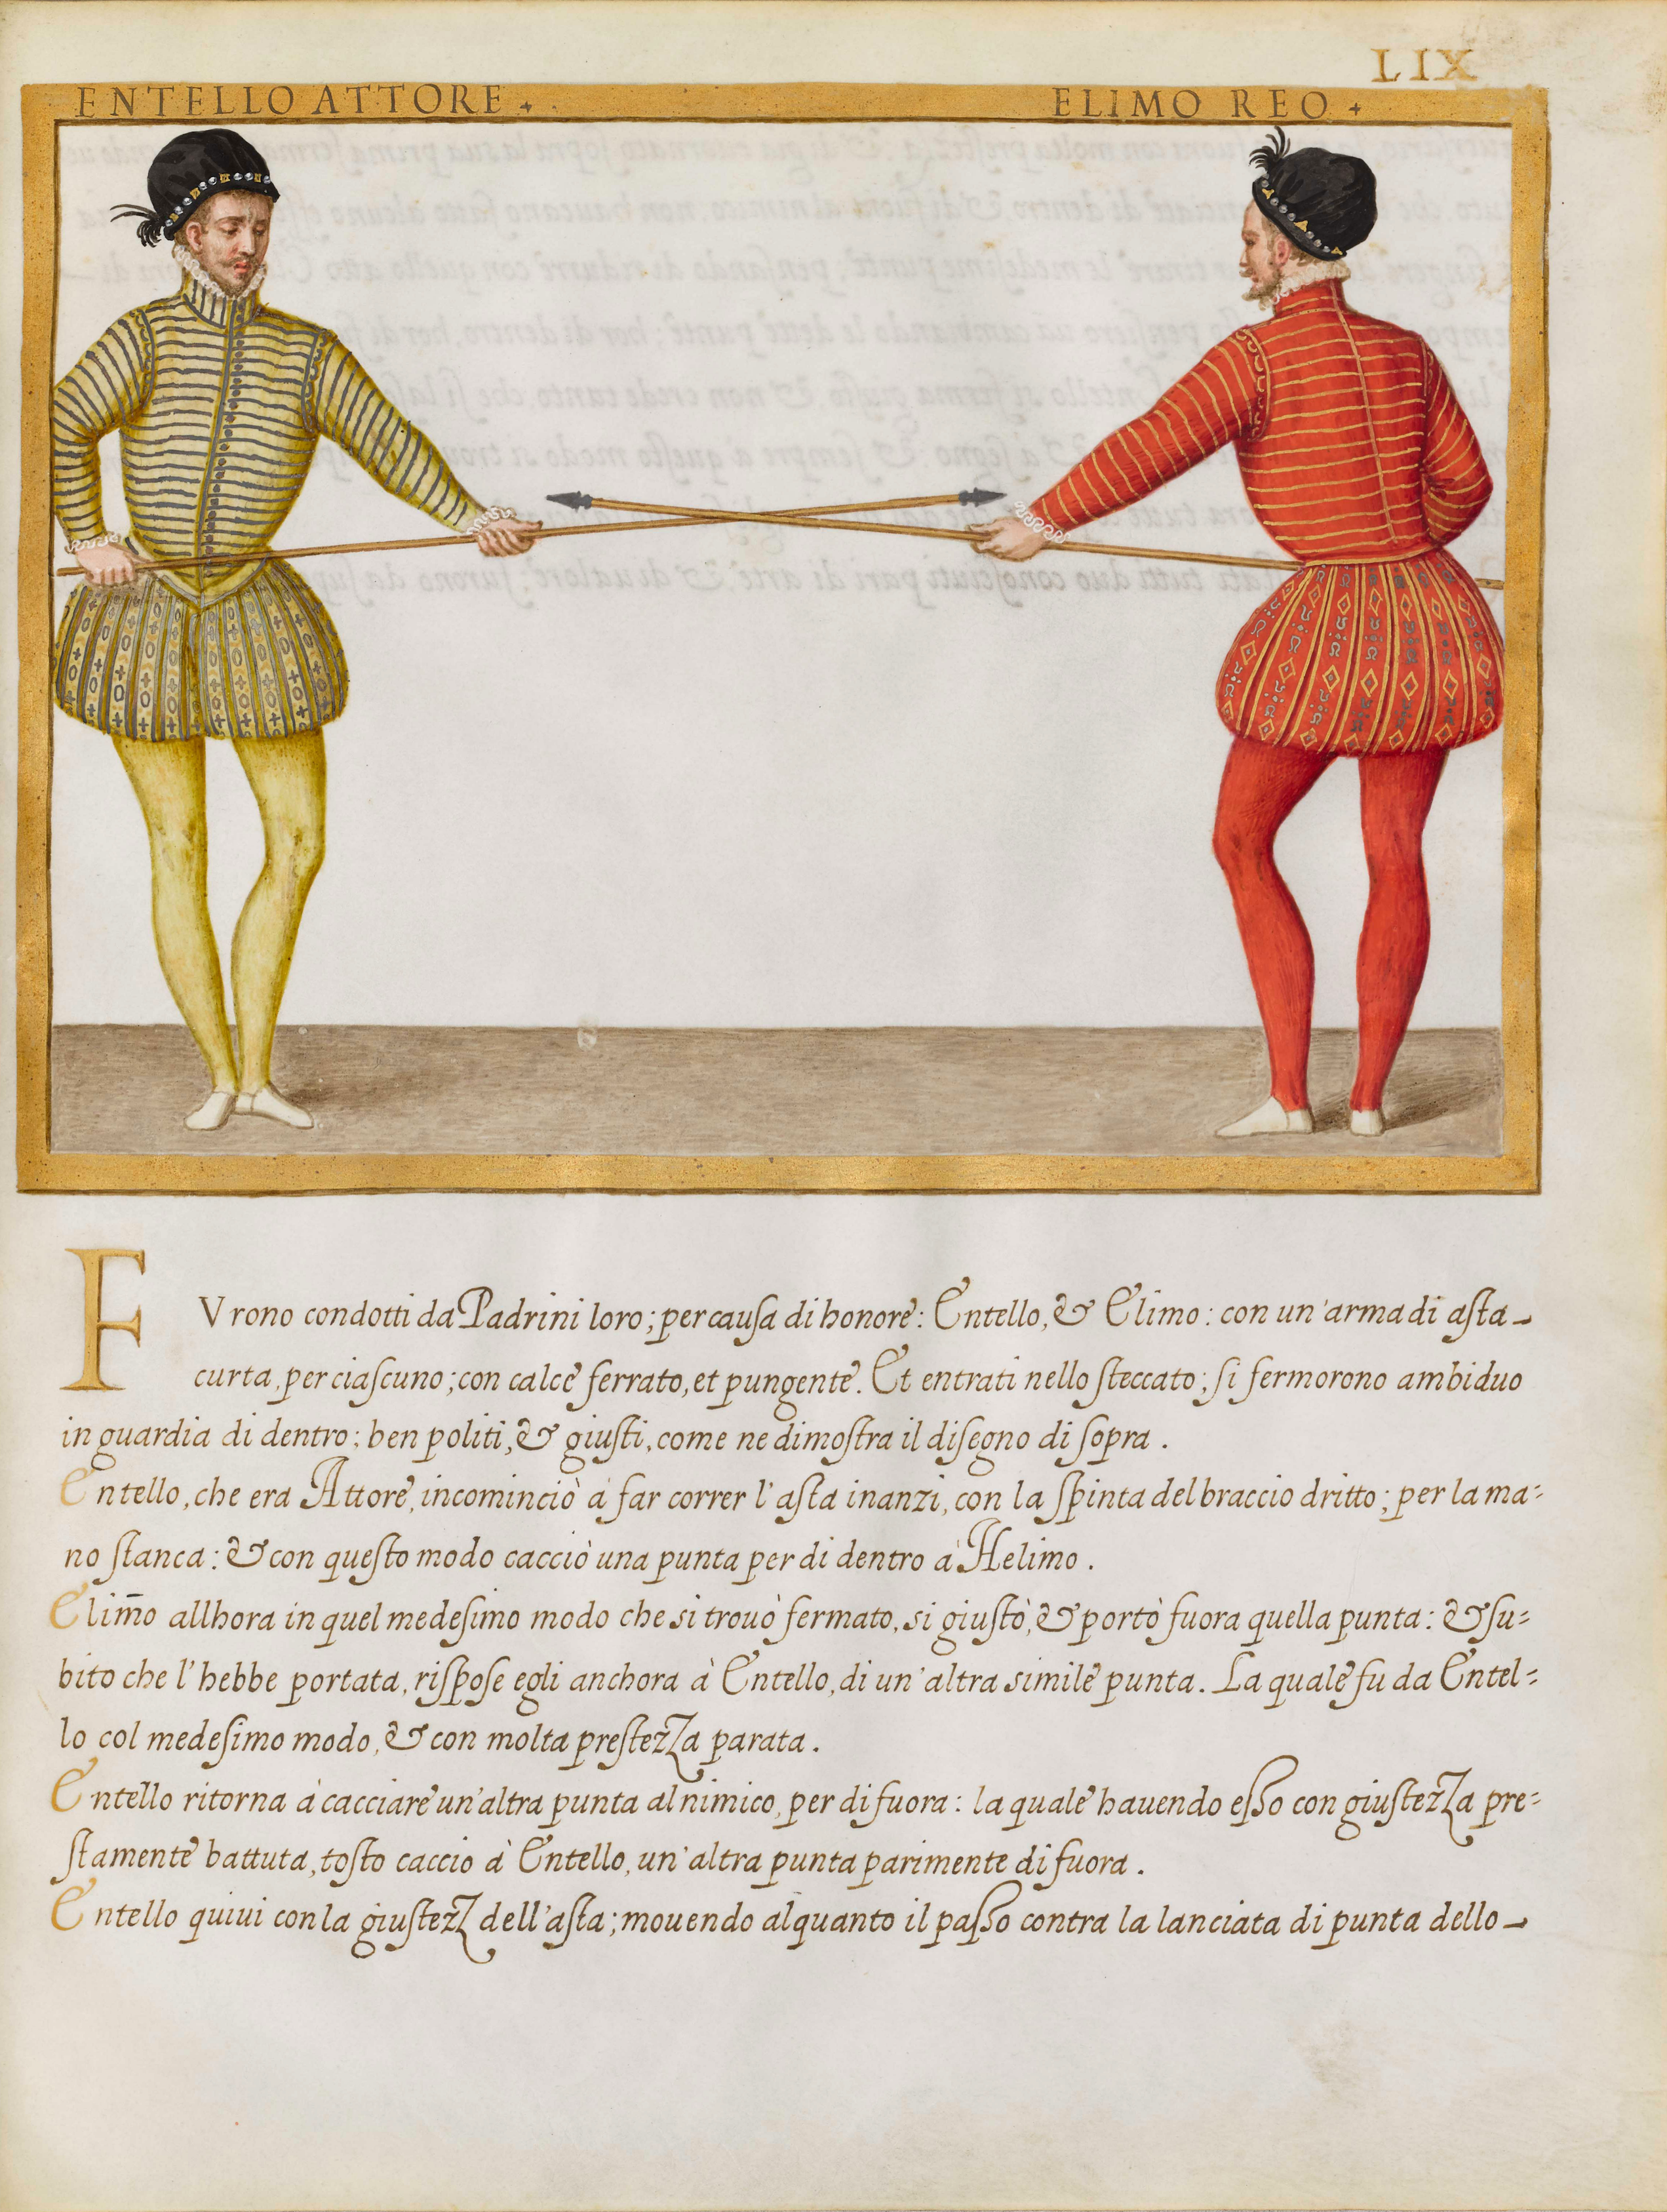 LIX
ENTELLO ATTORE + ELIMO REO +
FVrono condotti da Padrini loro; per cauſa di honore: Entello, & Elimo: con un'arma di aſta
curta, per ciaſcuno; con calce ferrato, et pungente. Et entrati nello ſteccato; ſi fermorono ambiduo
in guardia di dentro; ben politi, & giuſti, come ne dimoſtra il diſegno di ſopra.
Entello, che era Attore, incominciò à far correr l'aſta inanzi, con la ſpinta del braccio dritto; per la ma=
no ſtanca: & con queſto modo cacciò una punta per di dentro à Helimo.
Elim̄o allhora in quel medeſimo modo che si trouò fermato, si giuſtò, & portò fuora quella punta: & ſu=
bito che l'hebbe portata, riſpoſe egli anchora à Entello, di un'altra simile punta. La quale fu da Entel=
lo col medeſimo modo, & con molta preſtezza parata.
Entello ritorna à cacciare un'altra punta al nimico, per di fuora: la quale hauendo eſſo con giuſtezza pre=
ſtamente battuta, toſto caccio à Entello, un'altra punta parimente di fuora.
Entello quiui con la giuſtezz dell'aſta; mouendo alquanto il paſſo contra la lanciata di punta dello